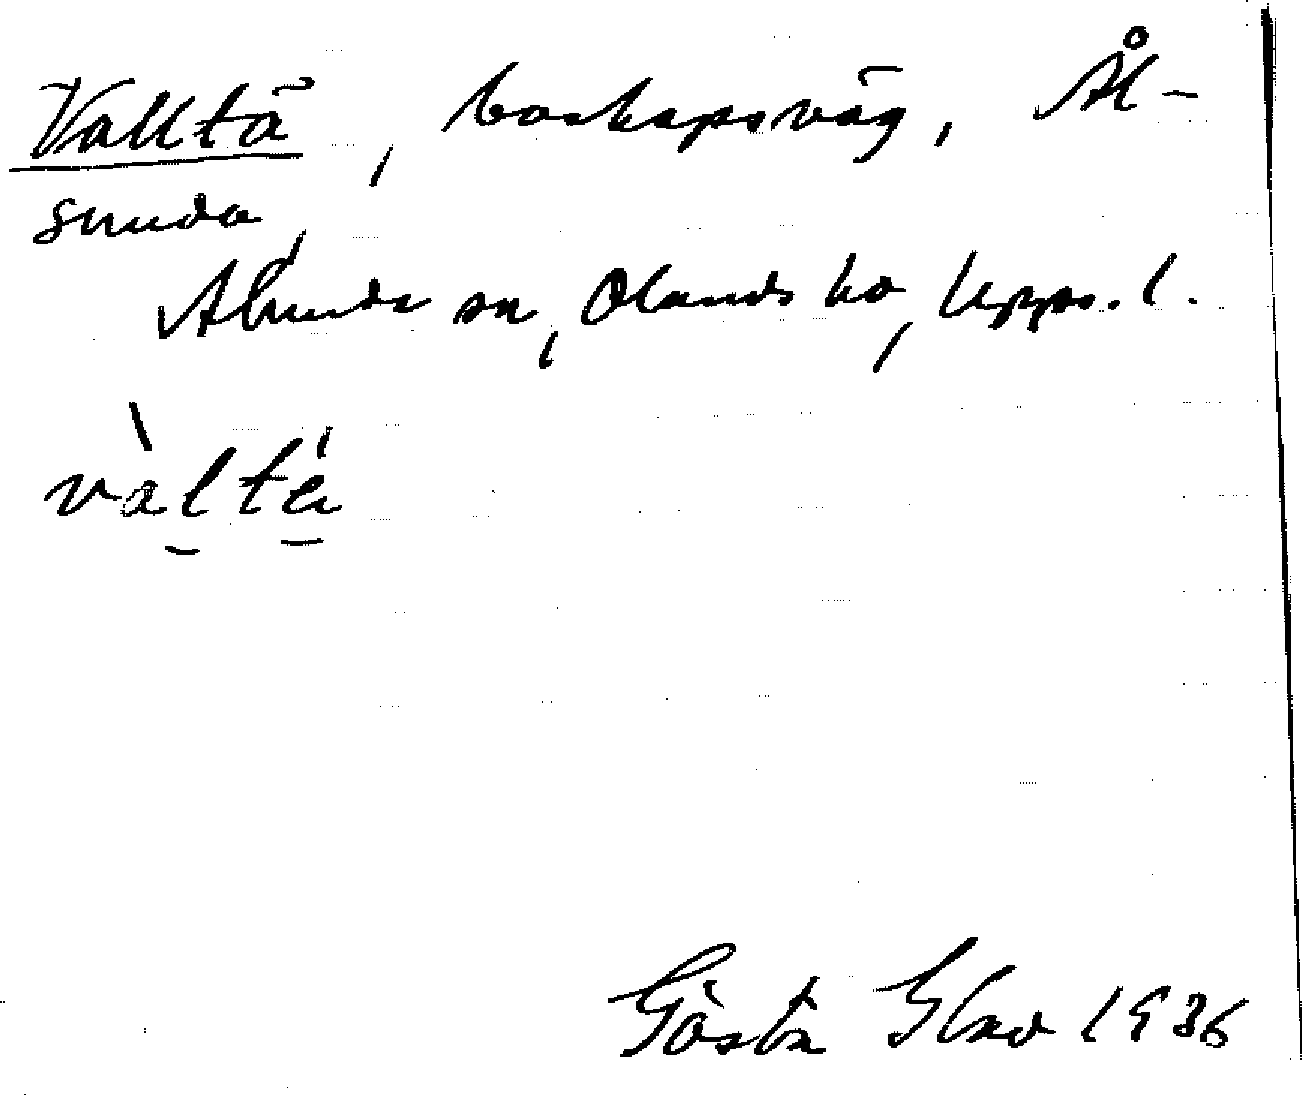 Valltä, boskapsväg, Ål-
sunda,
Alunda sn, Olands hd, Upps. l.
vàltä́
Gösta Elav 1936